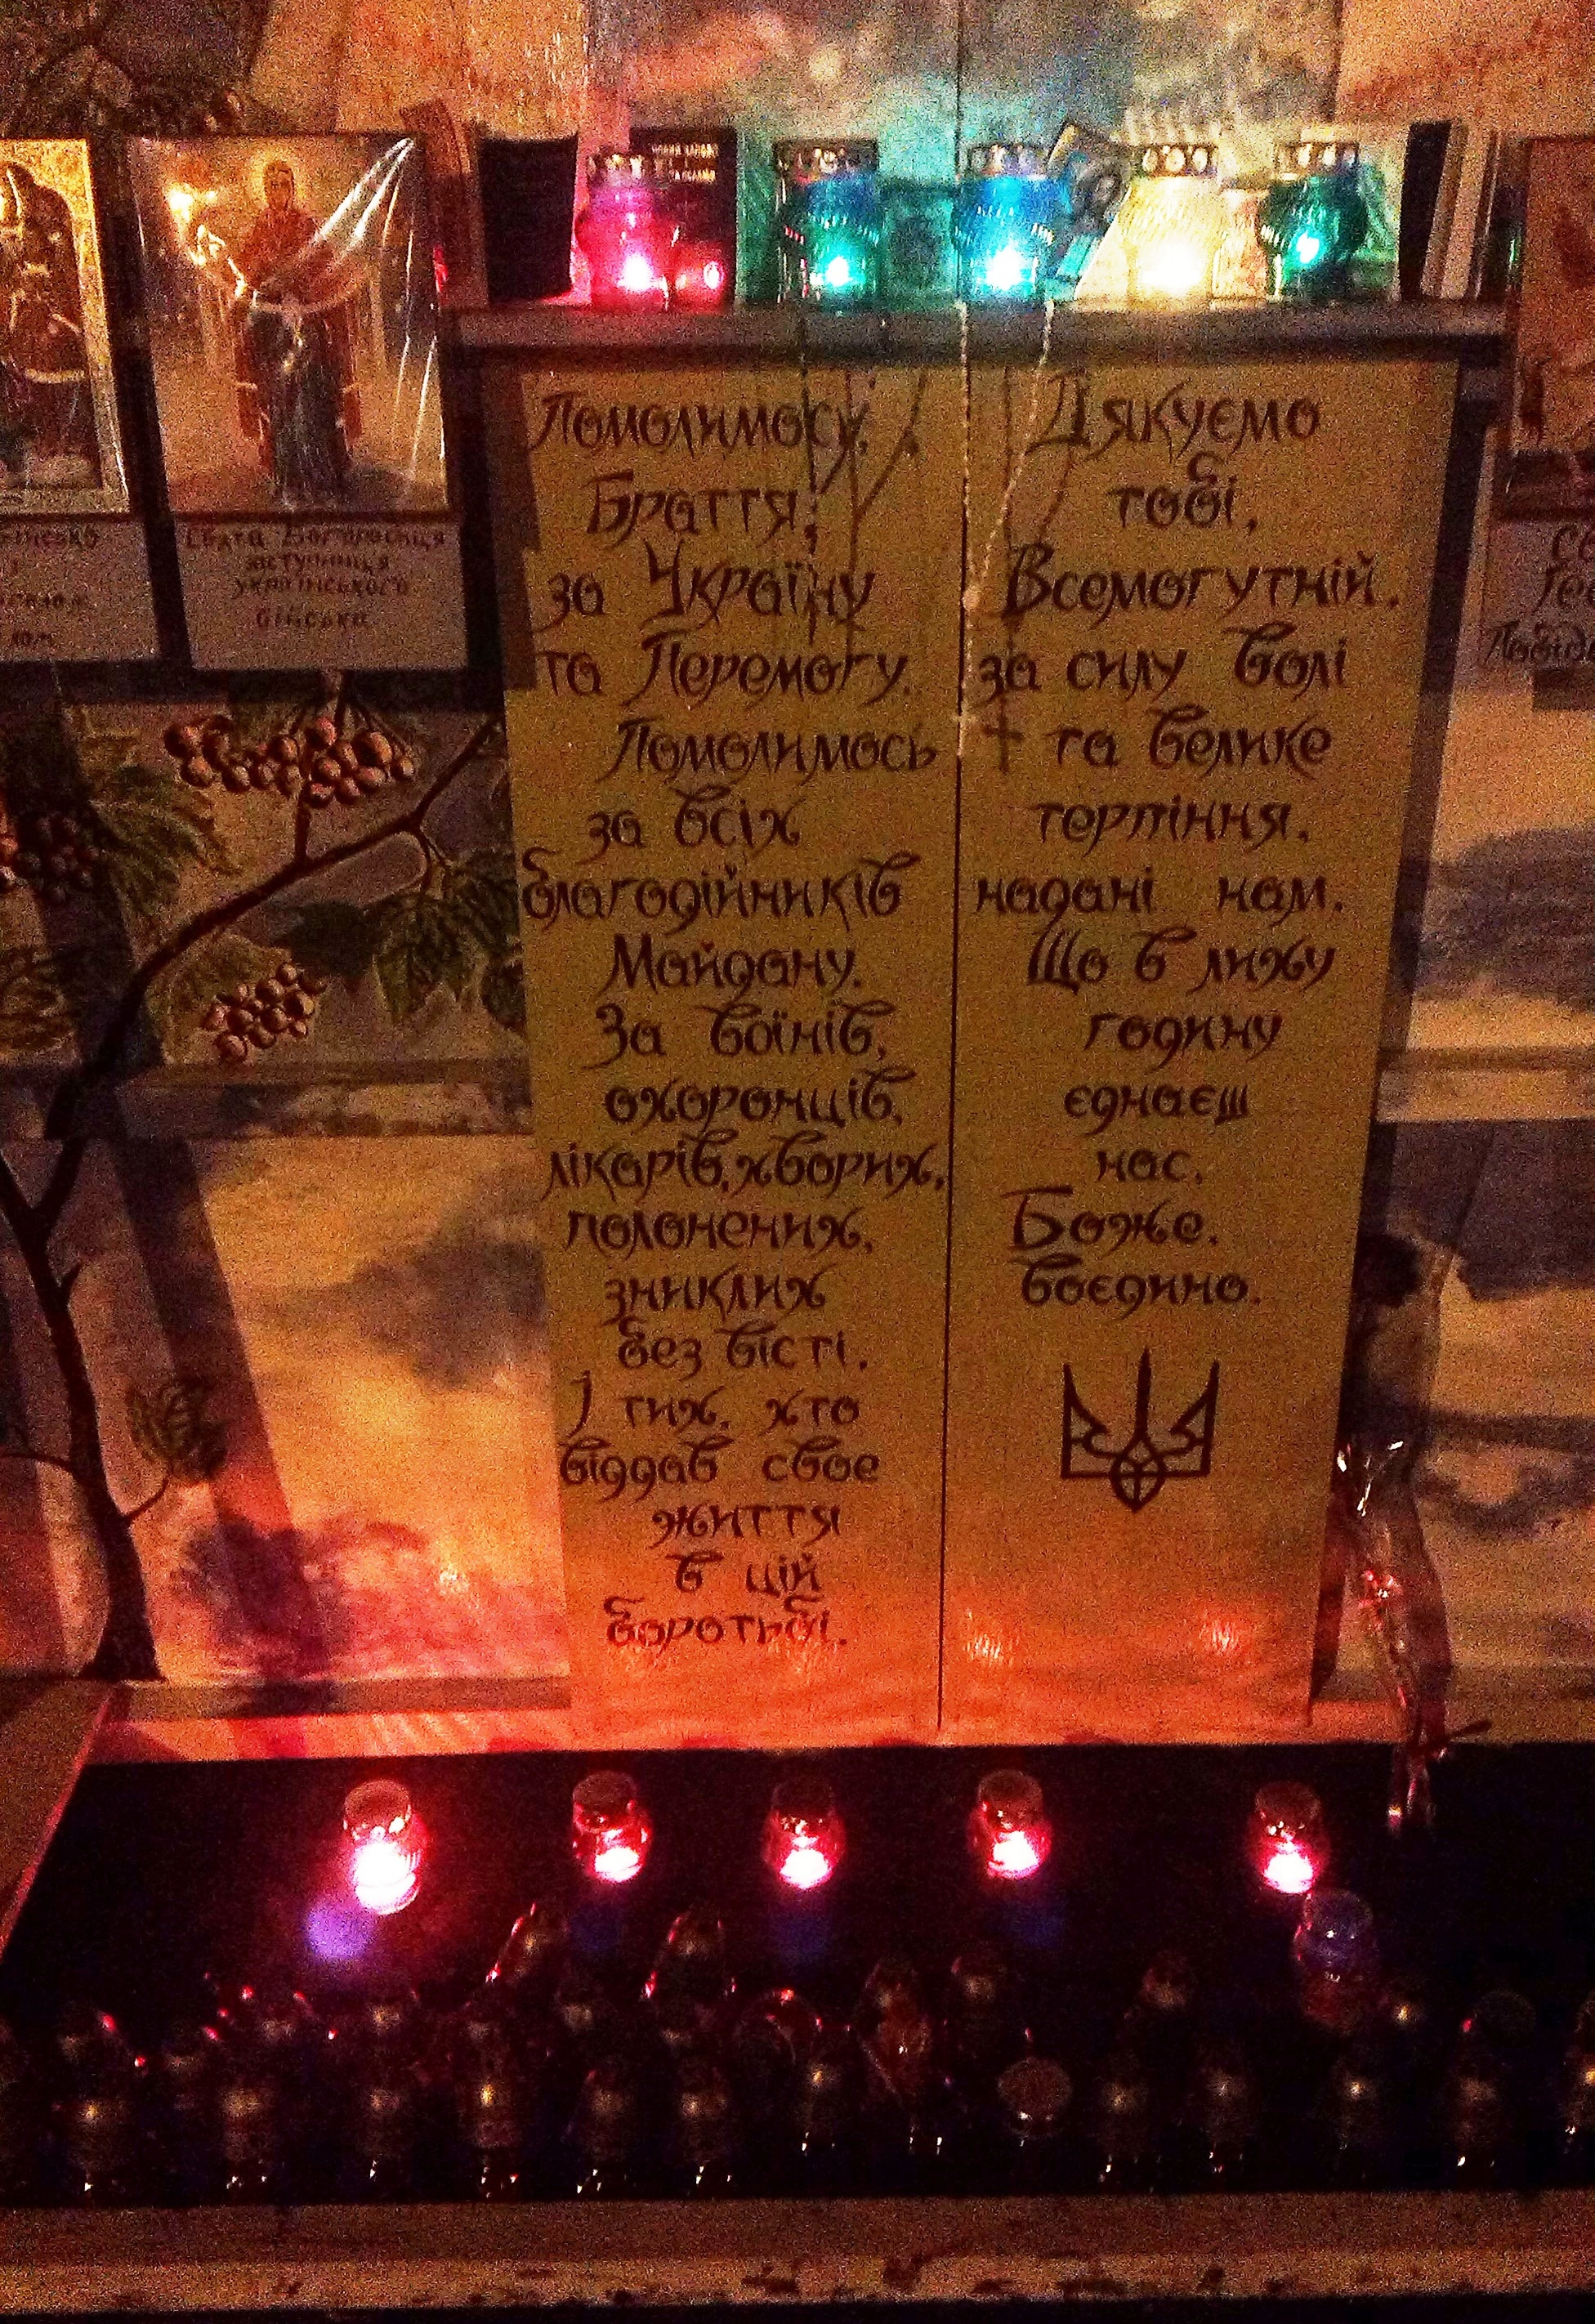 Свята Богородиця
заступниця
українського
війська
Помолимось,
Браття,
за Україну
та Перемогу.
Помолимось
за всіх
благодійників
Майдану.
За воїнів,
охоронців,
лікарів, хворих,
полонених,
зниклих
без вісті.
І тих, хто
віддав своє
життя
в цій
боротьбі.
Дякуємо
тобі,
Всемогутній,
за силу волі
та велике
терпіння,
надані нам.
Що в лиху
годину
єднаєш
нас,
Боже,
воєдино.